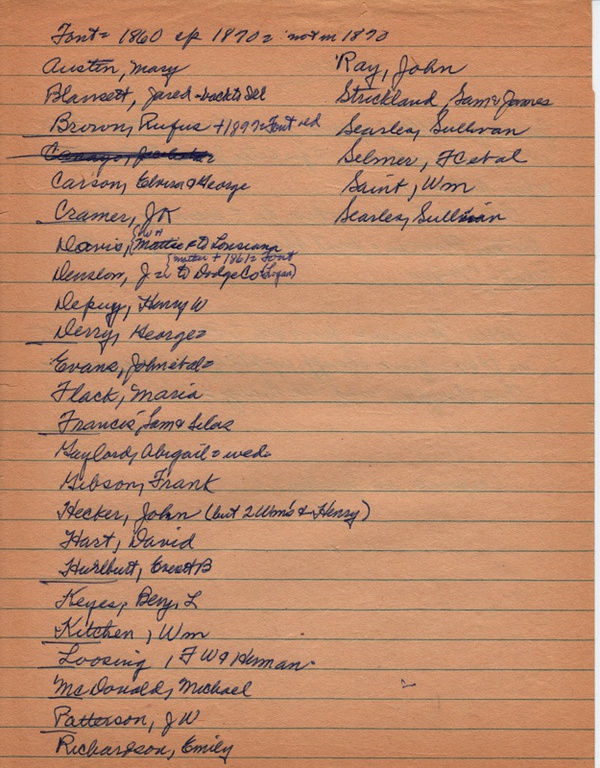 Font = 1860 cp 1870 = not in 1870
Austen, Mary
Blansett, Jared - back to Del
Brown, Rufus + 1897 = Font old
Carson, Elvira & George
Cramer, JK
Davis, {WH Mattie & to Louisiana
Denslow, J = {mother + 1861 = Font to Dodge Co (Logan)
Depuy, Henry W
Derry, George =
Evans, John et al =
Flack, Maria
Francis, Sam & Silas
Gaylord, Abigail = wid.
Gibson, Frank
Hecker, John (but 2 Wm's & Henry)
Hart, David
Hurlbutt, Everett B
Keyes, Benj, L
Kitchen, Wm
Loosing, F W & Herman
McDonald, Michael
Patterson, J W
Richardson, Emily
Ray, John
Strickland, Sam & James
Searles, Sullivan
Selmer, F C et al
Saint, Wm
Searles, Sullivan